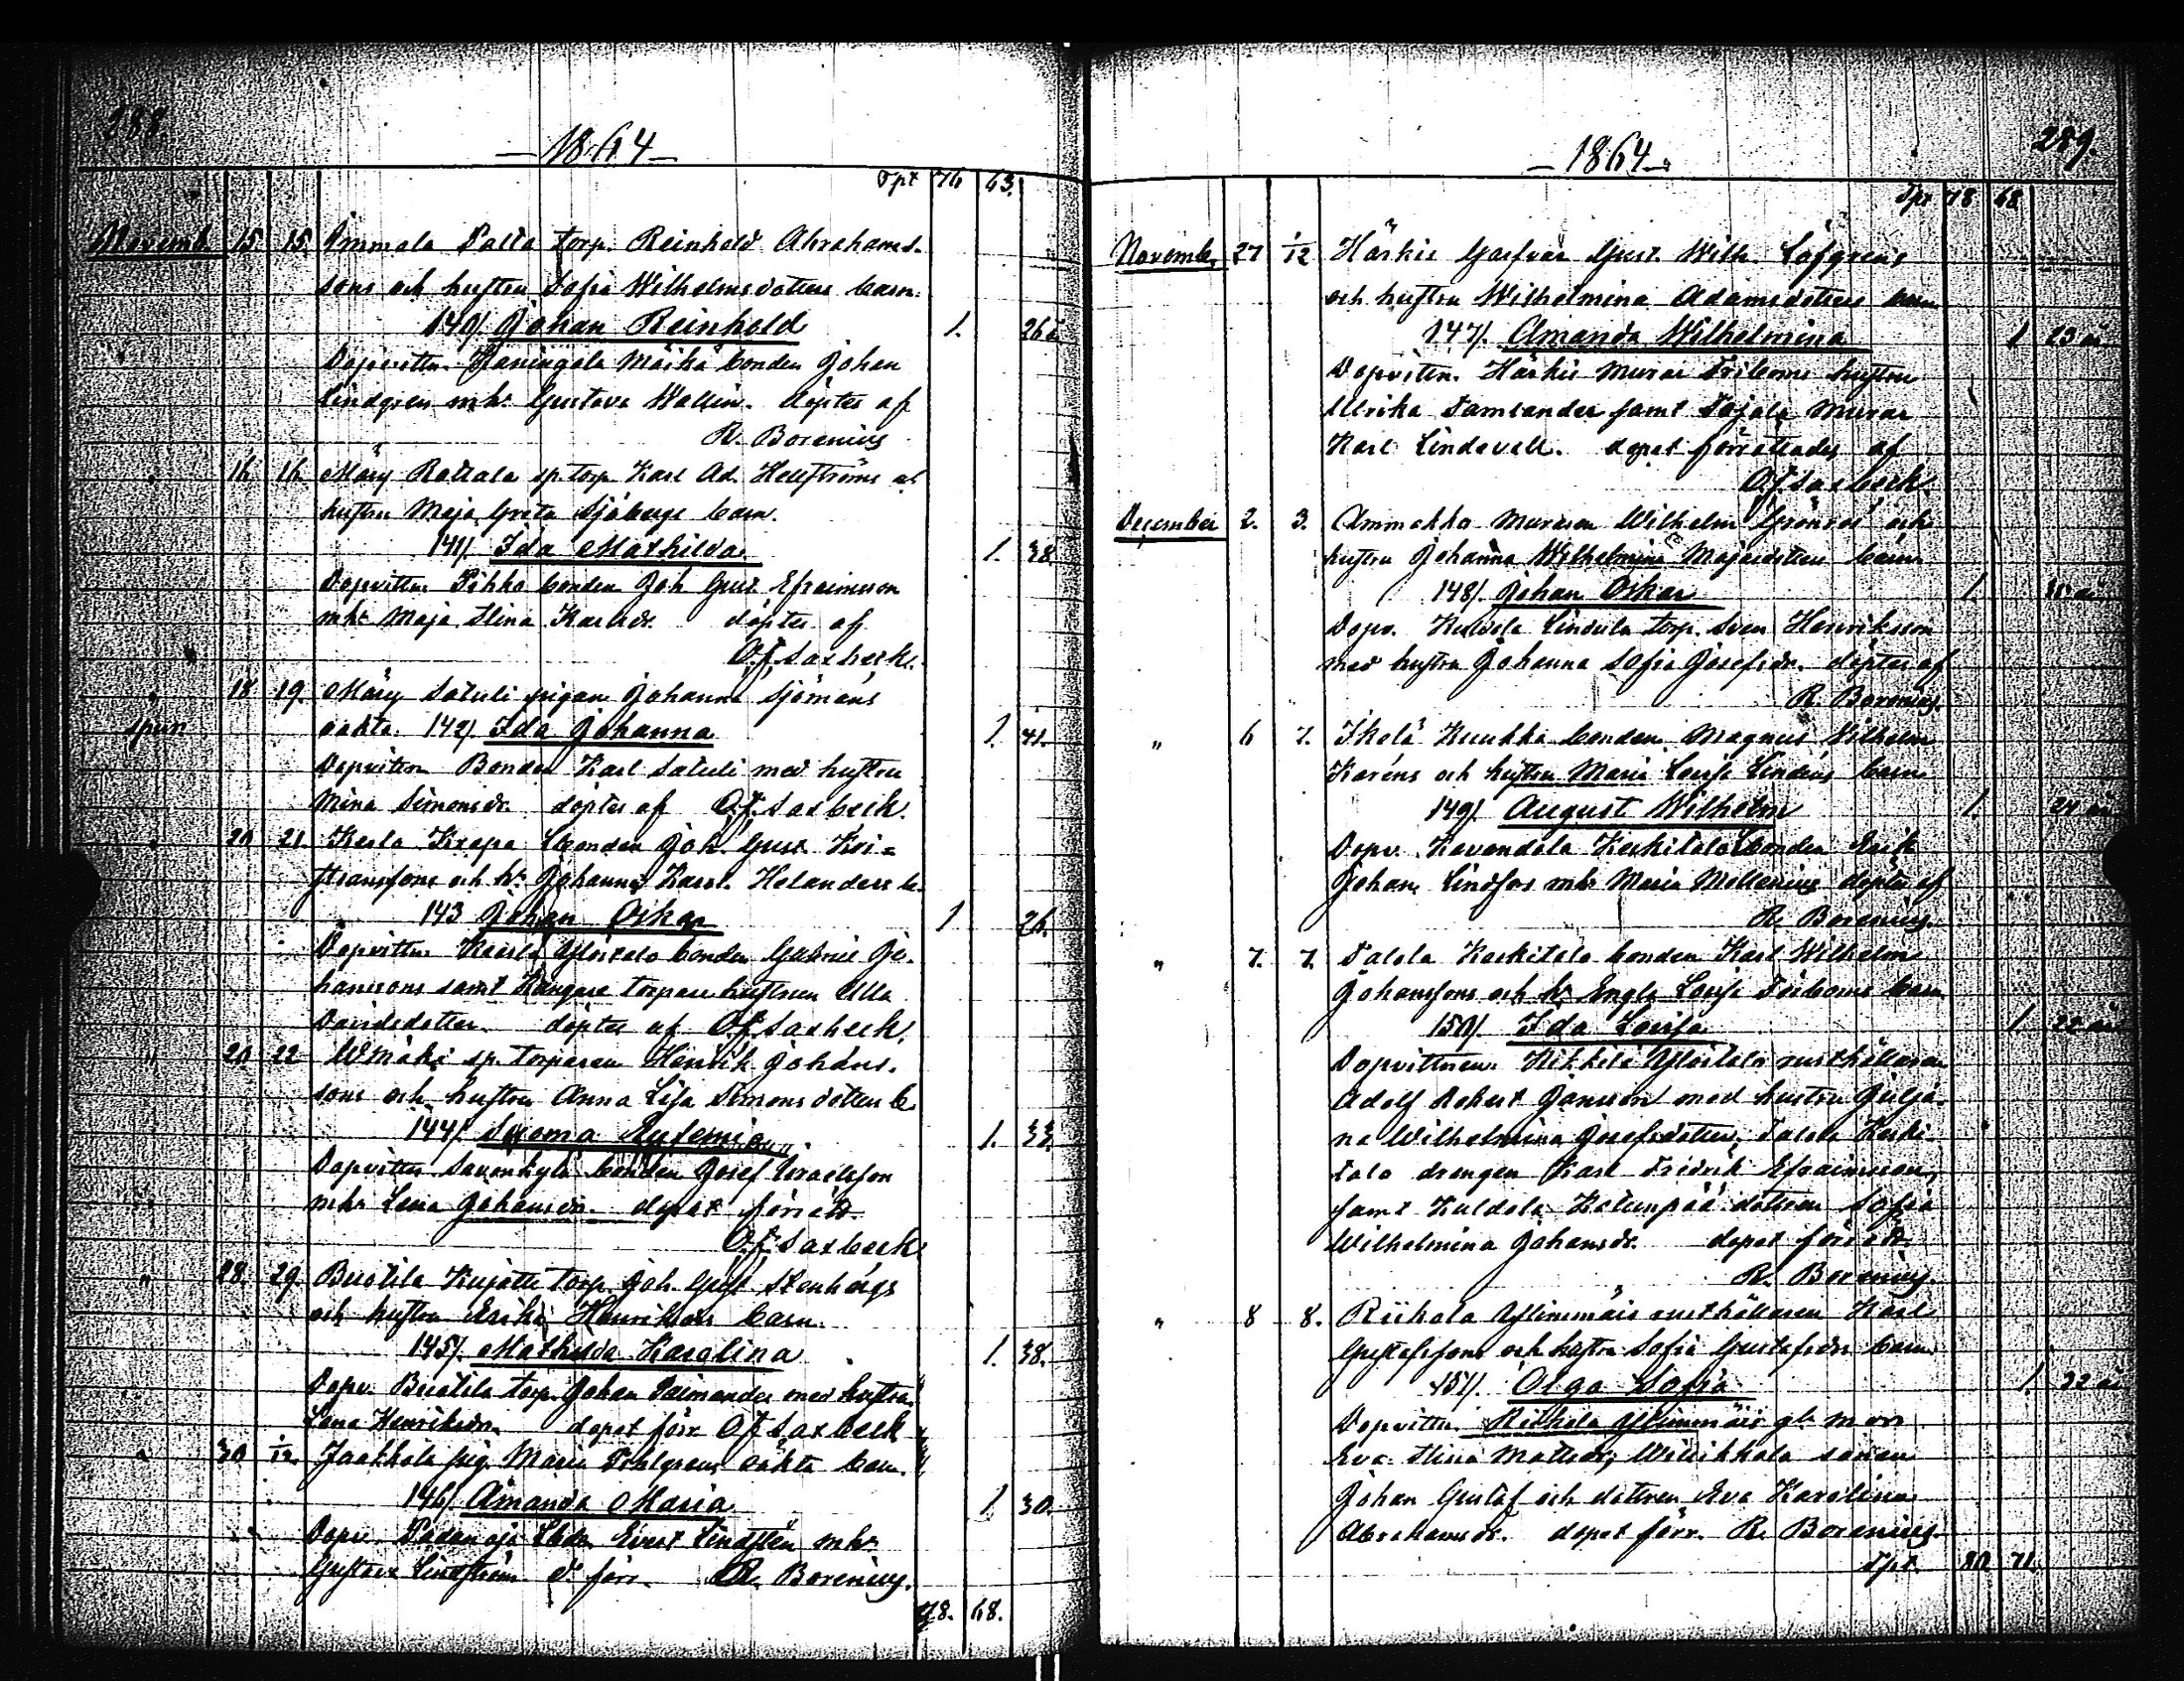 288.
— 1864 —
Tpt 76 63.
Novemb. 15 15 Ammala Palta torp. Reinhold Abrahams-
sons och hustru Sofia Wilhelmsdotters barn.
140/. Johan Reinhold 1. 26
Dopvittn. Haningala Mäikä bonden Johan
Lindgren mhr Gustava Wallin. döptes af
R. Borenius
" 16. 16. Märy Rattala sp. torp. Karl Ad. Hellströms och
hustru Maja Greta Sjöbergs barn.
141/. Ida Mathilda 1. 38.
Dopvittn. Pikka bonden Joh Gust Efraimsson
mhr Maja Stina Karlsdr. döptes af
O.f. Saxbeck.
" 18 19. Märy Satuli pigan Johanna Sjömans
spur. oäkta. 142/ Ida Johanna 1. 41.
Dopvittn Bonden Karl Satuli med hustru
Mina Simonsdr. döptes af O.f. Saxbeck.
" 20 21. Kesla Krapa bonden Joh. Gust. Kri=
stianssons och hr Johanna Karol. Helanders b.
143 Johan Oskar 1 26.
Dopvittn. Kaerla Ylöstalo bonden Gabriel Jo-
hanssons samt Kangare torpare hustrun Ulla
Davidsdotter. döptes af O.f. Saxbeck.
" 20 22 Wmäki sp. torparen Henrik Johans-
sons och hustru Anna Lisa Simonsdotters b.
144/. Sajoma Eufemia 1. 33.
Dopvittn Savonkylä bonden Josef Israelsson
mhr Lena Johansdr. dopet förrätt.
O.f. Saxbeck
" 28. 29. Buotila Kujatti torp. Joh. Gust. Stenbergs
och hustru Erika Henriksdrs barn.
145/. Mathilda Karolina 1. 38.
Dopv. Buotila torp. Johan Salmander med hustru
Lena Henriksdr. dopet förr O.f. Saxbeck
" 30 1/12. Jaakkola pig. Maria Dahlgrens oäkta barn.
146/. Amanda Maria 1. 30.
Dopv. Padanoja Lbde. Evert Lindsten mhr
Gustava Lindström d° förr. R. Borenius.
78. 68.
289.
— 1864 —
Tpt 78 68
November 27 1/12 Härkis Garfvar Gust. Wilh. Löfgrens
och hustru Wilhelmina Adamsdotters barn
147/. Amanda Wilhelmina 1 23 år
Dopvittn. Härkis Murar Friboms hustru
Ulrika Tamlander samt Tojala Murar
Karl Lindevall. dopet förrättades af
O.f. Saxbeck.
December 2. 3. Ammakko muraren Wilhelm Grönros' och
hustru Johanna Wilhelmina Majasdotters barn
148/. Johan Oskar 1.
Dopv. Kuldela Lindula torp. Sven Henriksson
med hustru Johanna Sofia Josefsdr. döptes af
R. Borenius.
" 6 7. Ikola Kuukka bonden Magnus Wilhelm
Karéns och hustru Maria Lovisa Lindéns barn
149/. August Wilhelm 1. 24 år
Dopv. Kavandola Keskitalo bonden Erik
Johan Lindfors mhr Maria Mellenius döptes af
R. Borenius.
" 7. 7. Talola Keskitalo bonden Karl Wilhelm
Johanssons och hr Engla Lovisa Friboms barn
150/. Ida Lovisa 1 22 år
Dopvittnen. Nikkilä Ylöstalo rusthållaren
Adolf Robert Jansson med hustru Julja-
na Wilhelmina Josefsdotter, Talola Keski-
talo drengen Karl Fridrik Efraimsson,
samt Kuldola Katunpää dottren Sofia
Wilhelmina Johansdr. dopet förrätt.
R. Borenius.
" 8 8. Riihola Ylinenmäis rusthållaren Karl
Gustafssons och hustru Sofia Gustafsdrs barn
151/. Olga Sofia 1. 22 å
Dopvittn. Riihola Ylinenmäis gl. mor
Eva Stina Mattsdr, Willikkala sonen
Johan Gustaf och dottren Eva Karolina
Abrahamsdr. dopet förr. R. Borenius.
Tpt. 80 71.